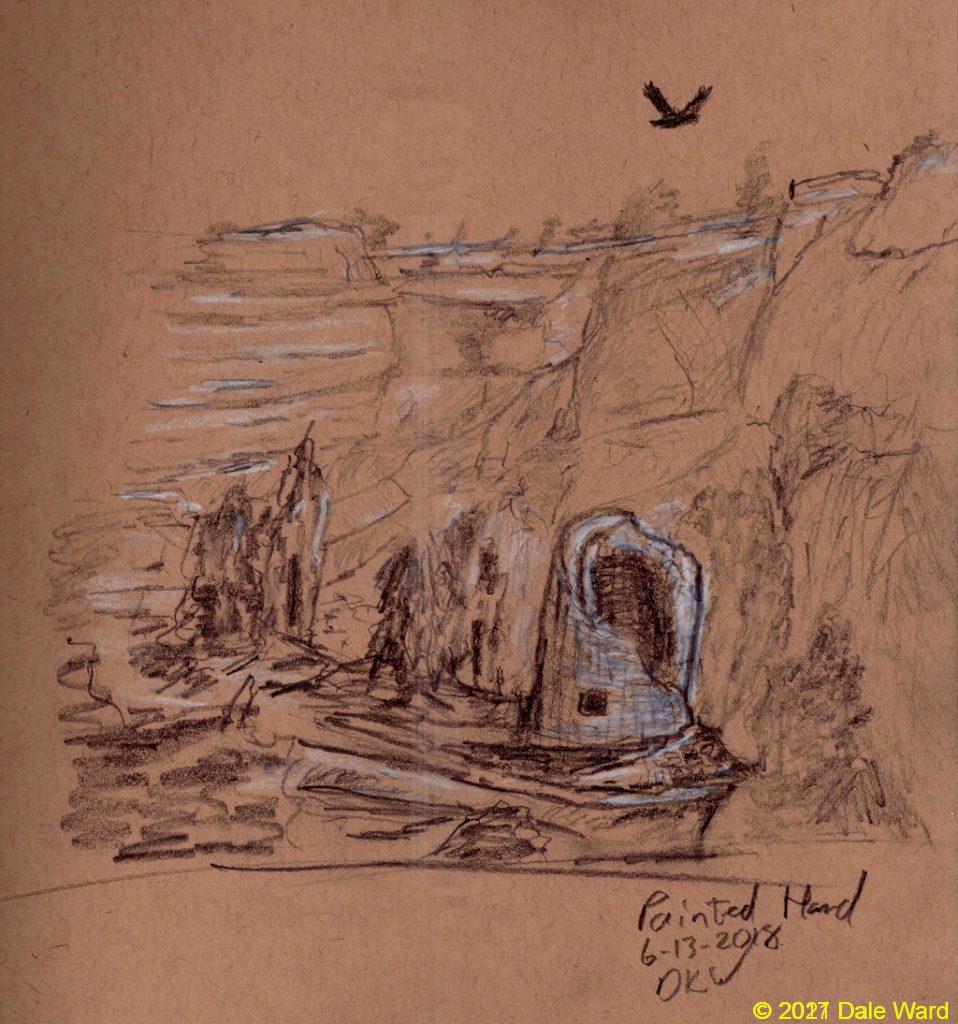 Painted Hand
6-13-2018
DKW
© Dale Ward